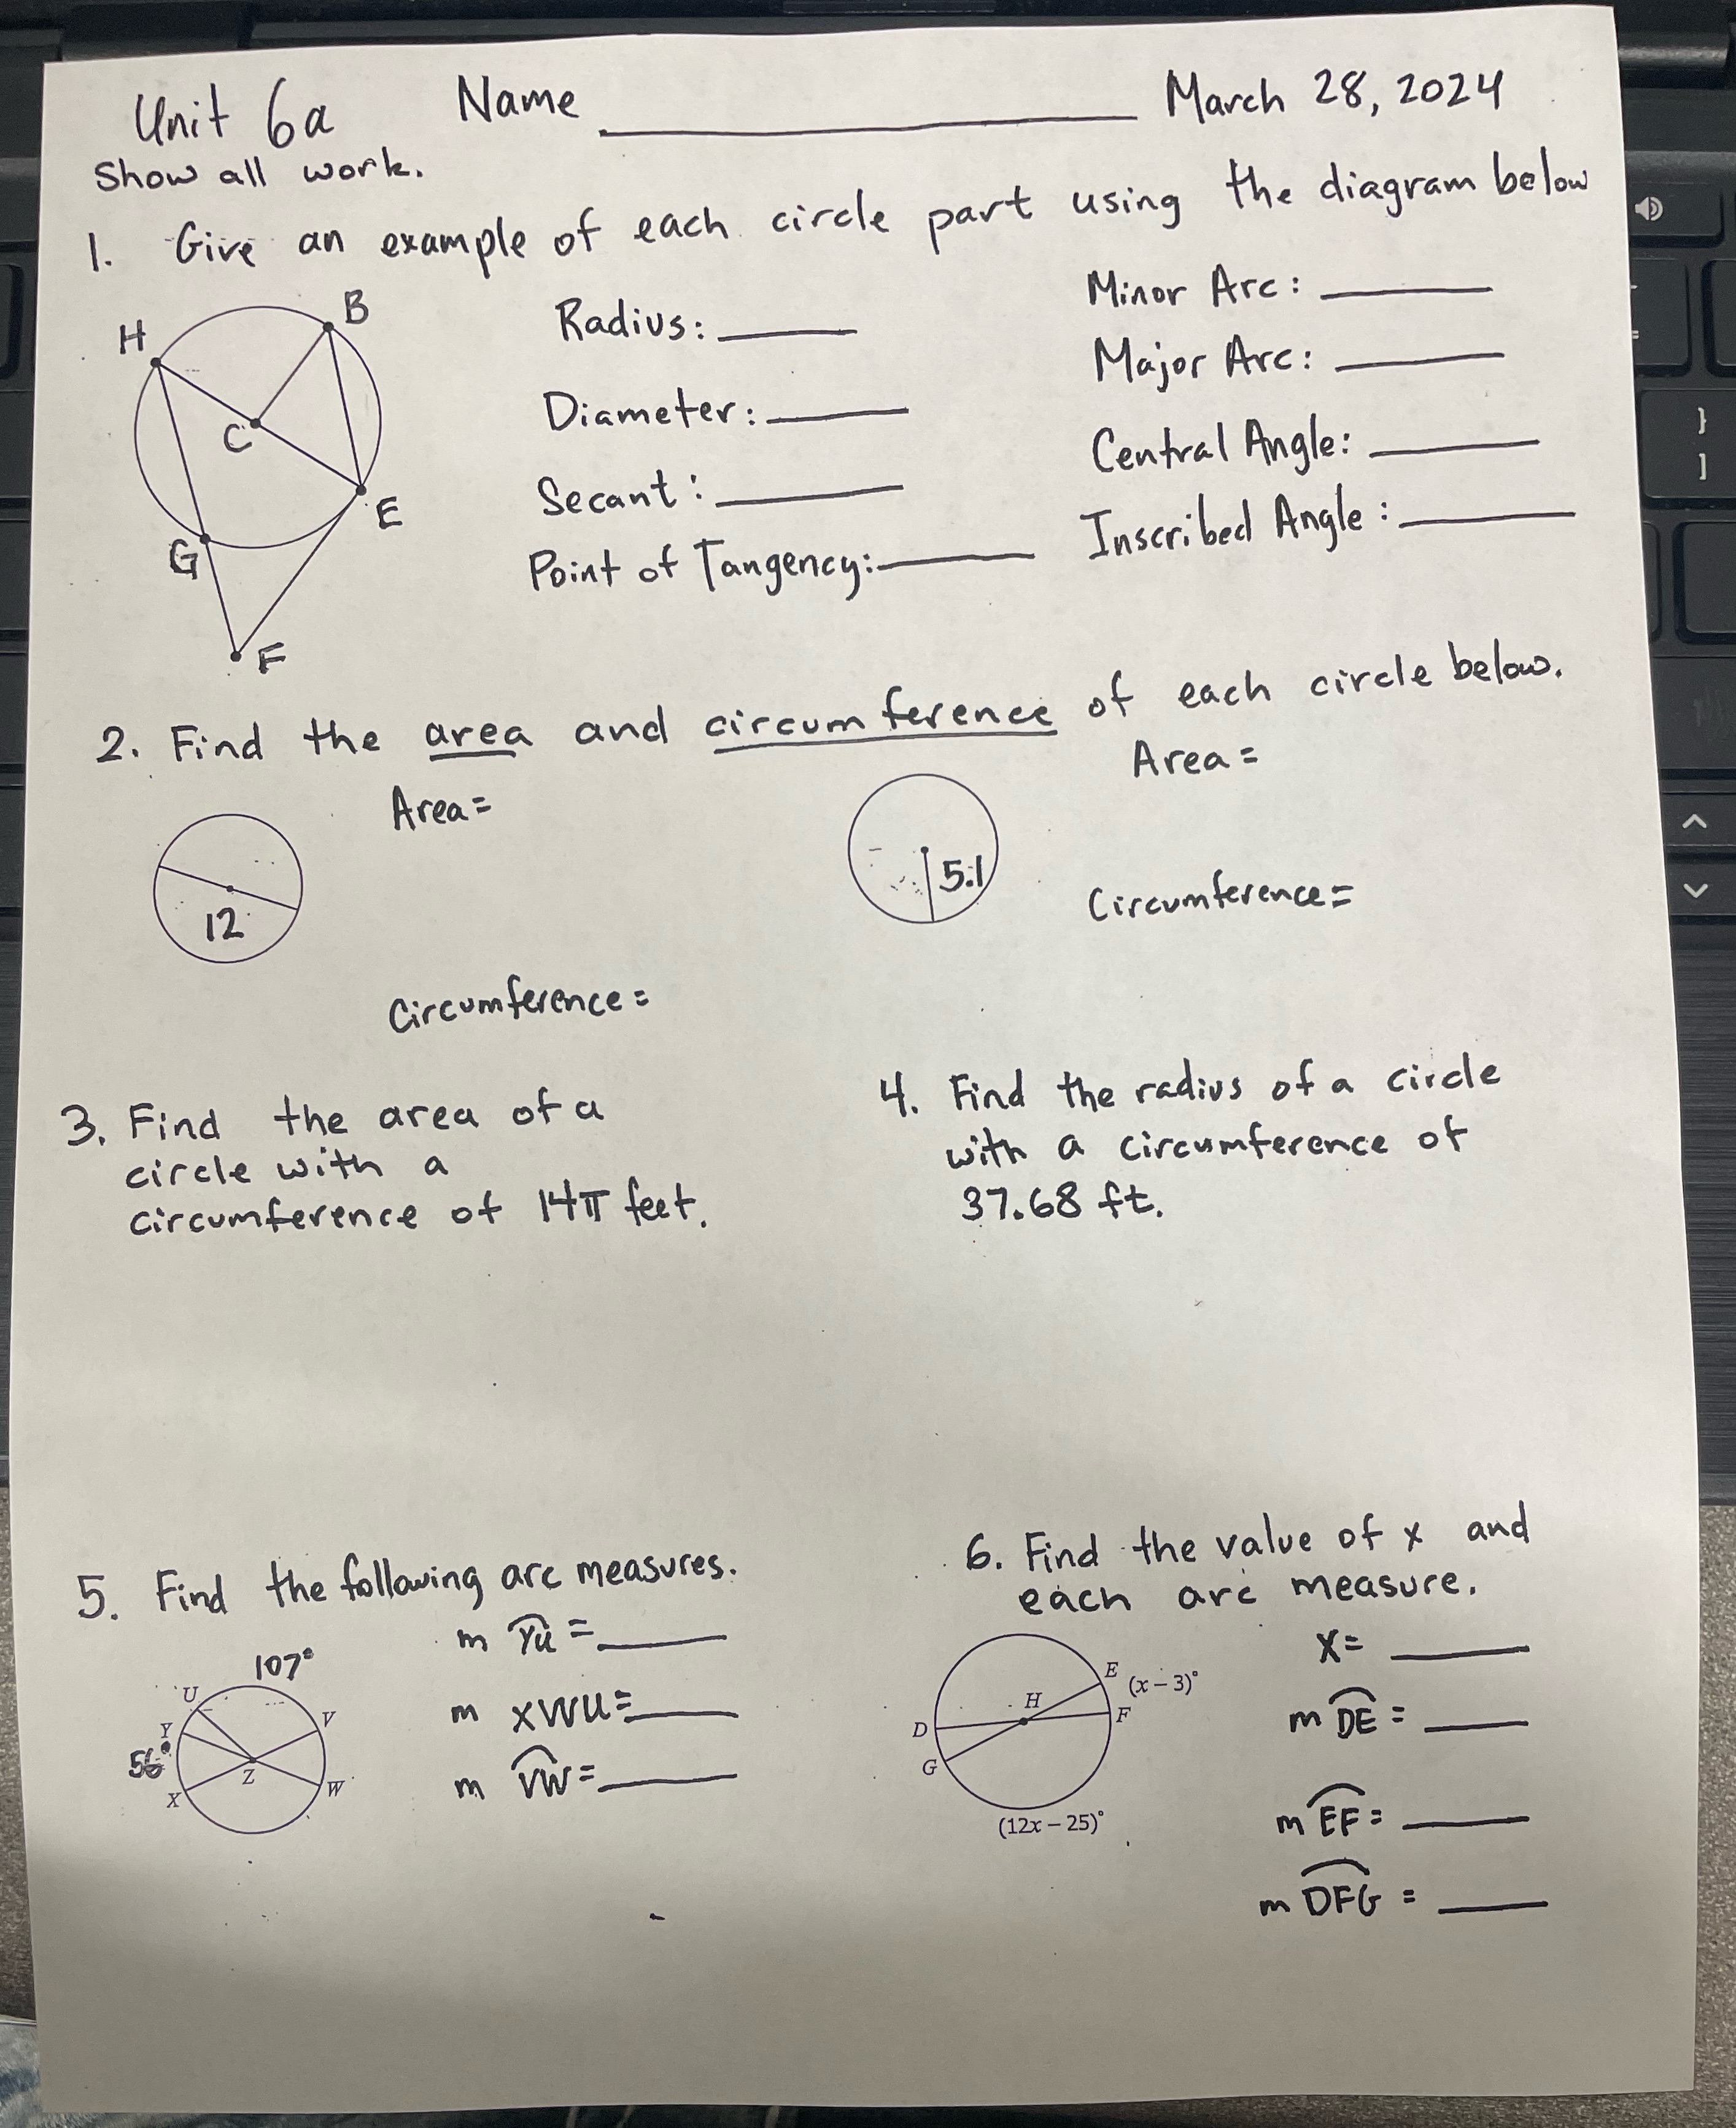 Unit 6a Name ____ March 28, 2024
Show all work.
1. Give an example of each circle part using the diagram below
H
B
C
E
G
F
Radius: ____
Diameter: ____
Secant: ____
Point of Tangency: ____
Minor Arc: ____
Major Arc: ____
Central Angle: ____
Inscribed Angle: ____
2. Find the area and circumference of each circle below.
12
Area =
Circumference =
5.1
Area =
Circumference =
3. Find the area of a
circle with a
circumference of 14π feet.
4. Find the radius of a circle
with a circumference of
37.68 ft.
5. Find the following arc measures.
107°
U
V
Y
56°
Z
X
W
m YU = ____
m XWU = ____
m VW = ____
6. Find the value of x and
each arc measure.
E
(x – 3)°
H
D
F
G
(12x – 25)°
X = ____
m DE = ____
m EF = ____
m DFG = ____
}
]